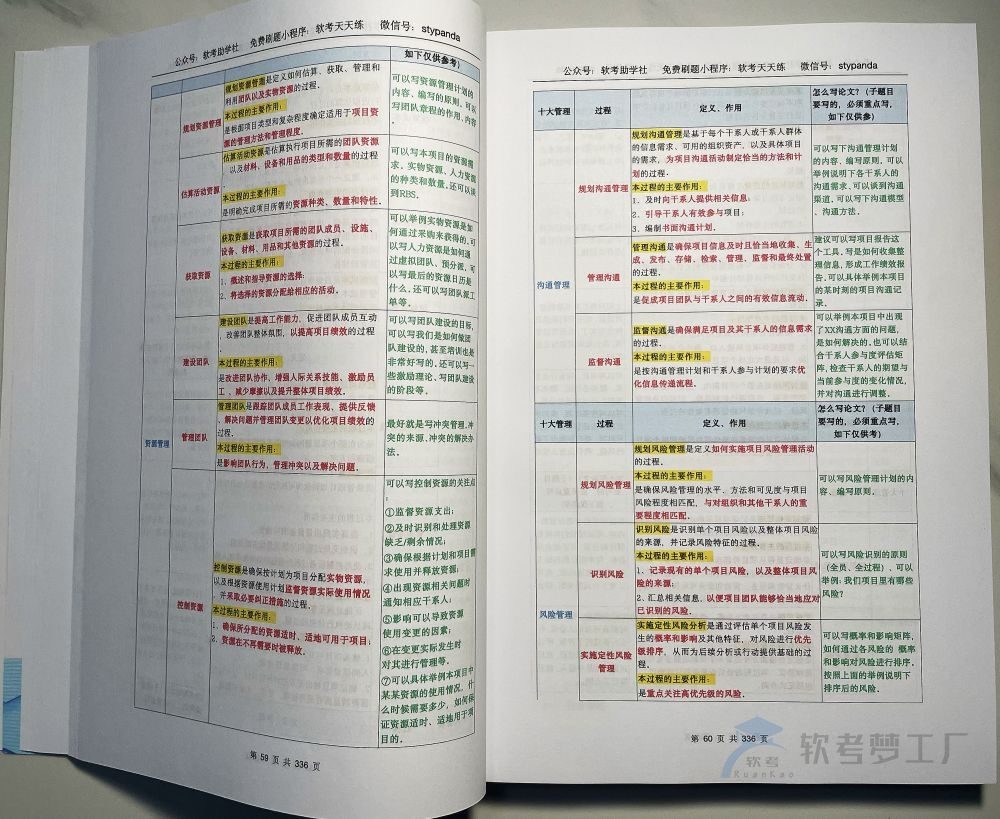 公众号：软考助学社 免费刷题小程序：软考天天练 微信号：stypanda
如下仅供参考）
规划资源管理
规划资源管理是定义如何估算、获取、管理和
利用团队以及实物资源的过程。
本过程的主要作用：
是根据项目类型和复杂程度确定适用于项目资
源的管理方法和管理程度。
可以写资源管理计划的
内容、编写的原则，可以
写团队章程的作用、内容
。
估算活动资源
估算活动资源是估算执行项目所需的团队资源
，以及材料、设备和用品的类型和数量的过程
。
本过程的主要作用：
是明确完成项目所需的资源种类、数量和特性。
可以写本项目的资源需
求，实物资源、人力资源
的种类和数量，还可以谈
到RBS。
获取资源
获取资源是获取项目所需的团队成员、设施、
设备、材料、用品和其他资源的过程。
本过程的主要作用：
1、概述和指导资源的选择；
2、将选择的资源分配给相应的活动。
可以举例实物资源是如
何通过采购来获得的，可
以写人力资源是如何通
过虚拟团队、预分派，可
以写最后的资源日历是
什么，还可以写团队派工
单等。
建设团队
建设团队是提高工作能力，促进团队成员互动
，改善团队整体氛围，以提高项目绩效的过程
。
本过程的主要作用：
是改进团队协作、增强人际关系技能、激励员
工 、减少摩擦以及提升整体项目绩效。
可以写团队建设的目标，
可以写我们是如何做团
队建设的，甚至培训也是
非常好写的，还可以写一
些激励理论、写团队建设
的阶段等。
资源管理
管理团队
管理团队是跟踪团队成员工作表现、提供反馈
、解决问题并管理团队变更以优化项目绩效的
过程。
本过程的主要作用：
是影响团队行为、管理冲突以及解决问题。
最好就是写冲突管理，冲
突的来源、冲突的解决办
法。
控制资源
控制资源是确保按计划为项目分配实物资源，
以及根据资源使用计划监督资源实际使用情况
，并采取必要纠正措施的过程。
本过程的主要作用：
1、确保所分配的资源适时、适地可用于项目；
2、资源在不再需要时被释放。
可以写控制资源的关注点
：
①监督资源支出；
②及时识别和处理资源
缺乏/剩余情况；
③确保根据计划和项目需
求使用并释放资源；
④出现资源相关问题时
通知相应干系人；
⑤影响可以导致资源
使用变更的因素；
⑥在变更实际发生时
对其进行管理等。
⑦可以具体举例本项目中
某某资源的使用情况，什
么时候需要多少，如何保
证资源适时、适地用于项
目的。
第 59 页 共 336 页
公众号：软考助学社 免费刷题小程序：软考天天练 微信号：stypanda
十大管理 过程 定义、作用
怎么写论文？（子题目
要写的，必须重点写，
如下仅供参）
沟通管理
规划沟通管理
规划沟通管理是基于每个干系人或干系人群体
的信息需求、可用的组织资产，以及具体项目
的需求，为项目沟通活动制定恰当的方法和计
划的过程。
本过程的主要作用：
1、及时向干系人提供相关信息；
2、引导干系人有效参与项目；
3、编制书面沟通计划。
可以写下沟通管理计划
的内容、编写原则，可以
举例说明下各干系人的
沟通需求，可以谈到沟通
渠道，可以写下沟通模型
、沟通方法。
管理沟通
管理沟通是确保项目信息及时且恰当地收集、生
成、发布、存储、检索、管理、监督和最终处置
的过程。
本过程的主要作用：
是促成项目团队与干系人之间的有效信息流动。
建议可以写项目报告这
个工具，写是如何收集整
理信息，形成工作绩效报
告，可以具体举例本项目
的某时刻的项目沟通记
录。
监督沟通
监督沟通是确保满足项目及其干系人的信息需求
的过程。
本过程的主要作用：
是按沟通管理计划和干系人参与计划的要求优
化信息传递流程。
可以举例本项目中出现
了XX沟通方面的问题，
是如何解决的，也可以结
合干系人参与度评估矩
阵，检查干系人的期望与
当前参与度的变化情况，
并对沟通进行调整。
十大管理 过程 定义、作用
怎么写论文？（子题目
要写的，必须重点写，
如下仅供考）
风险管理
规划风险管理
规划风险管理是定义如何实施项目风险管理活动
的过程。
本过程的主要作用：
是确保风险管理的水平、方法和可见度与项目
风险程度相匹配，与对组织和其他干系人的重
要程度相匹配。
可以写风险管理计划的内
容、编写原则。
识别风险
识别风险是识别单个项目风险以及整体项目风险
的来源，并记录风险特征的过程。
本过程的主要作用：
1、记录现有的单个项目风险，以及整体项目风
险的来源；
2、汇总相关信息，以便项目团队能够恰当地应对
已识别的风险。
可以写风险识别的原则
（全员、全过程）、可以
举例：我们项目里有哪些
风险？
实施定性风险
管理
实施定性风险分析是通过评估单个项目风险发
生的概率和影响及其他特征，对风险进行优先
级排序，从而为后续分析或行动提供基础的过
程。
本过程的主要作用：
是重点关注高优先级的风险。
可以写概率和影响矩阵，
如何通过各风险的 概率
和影响对风险进行排序。
按照上面的举例说明下
排序后的风险。
第 60 页 共 336 页
软考
RuanKao
软考梦工厂